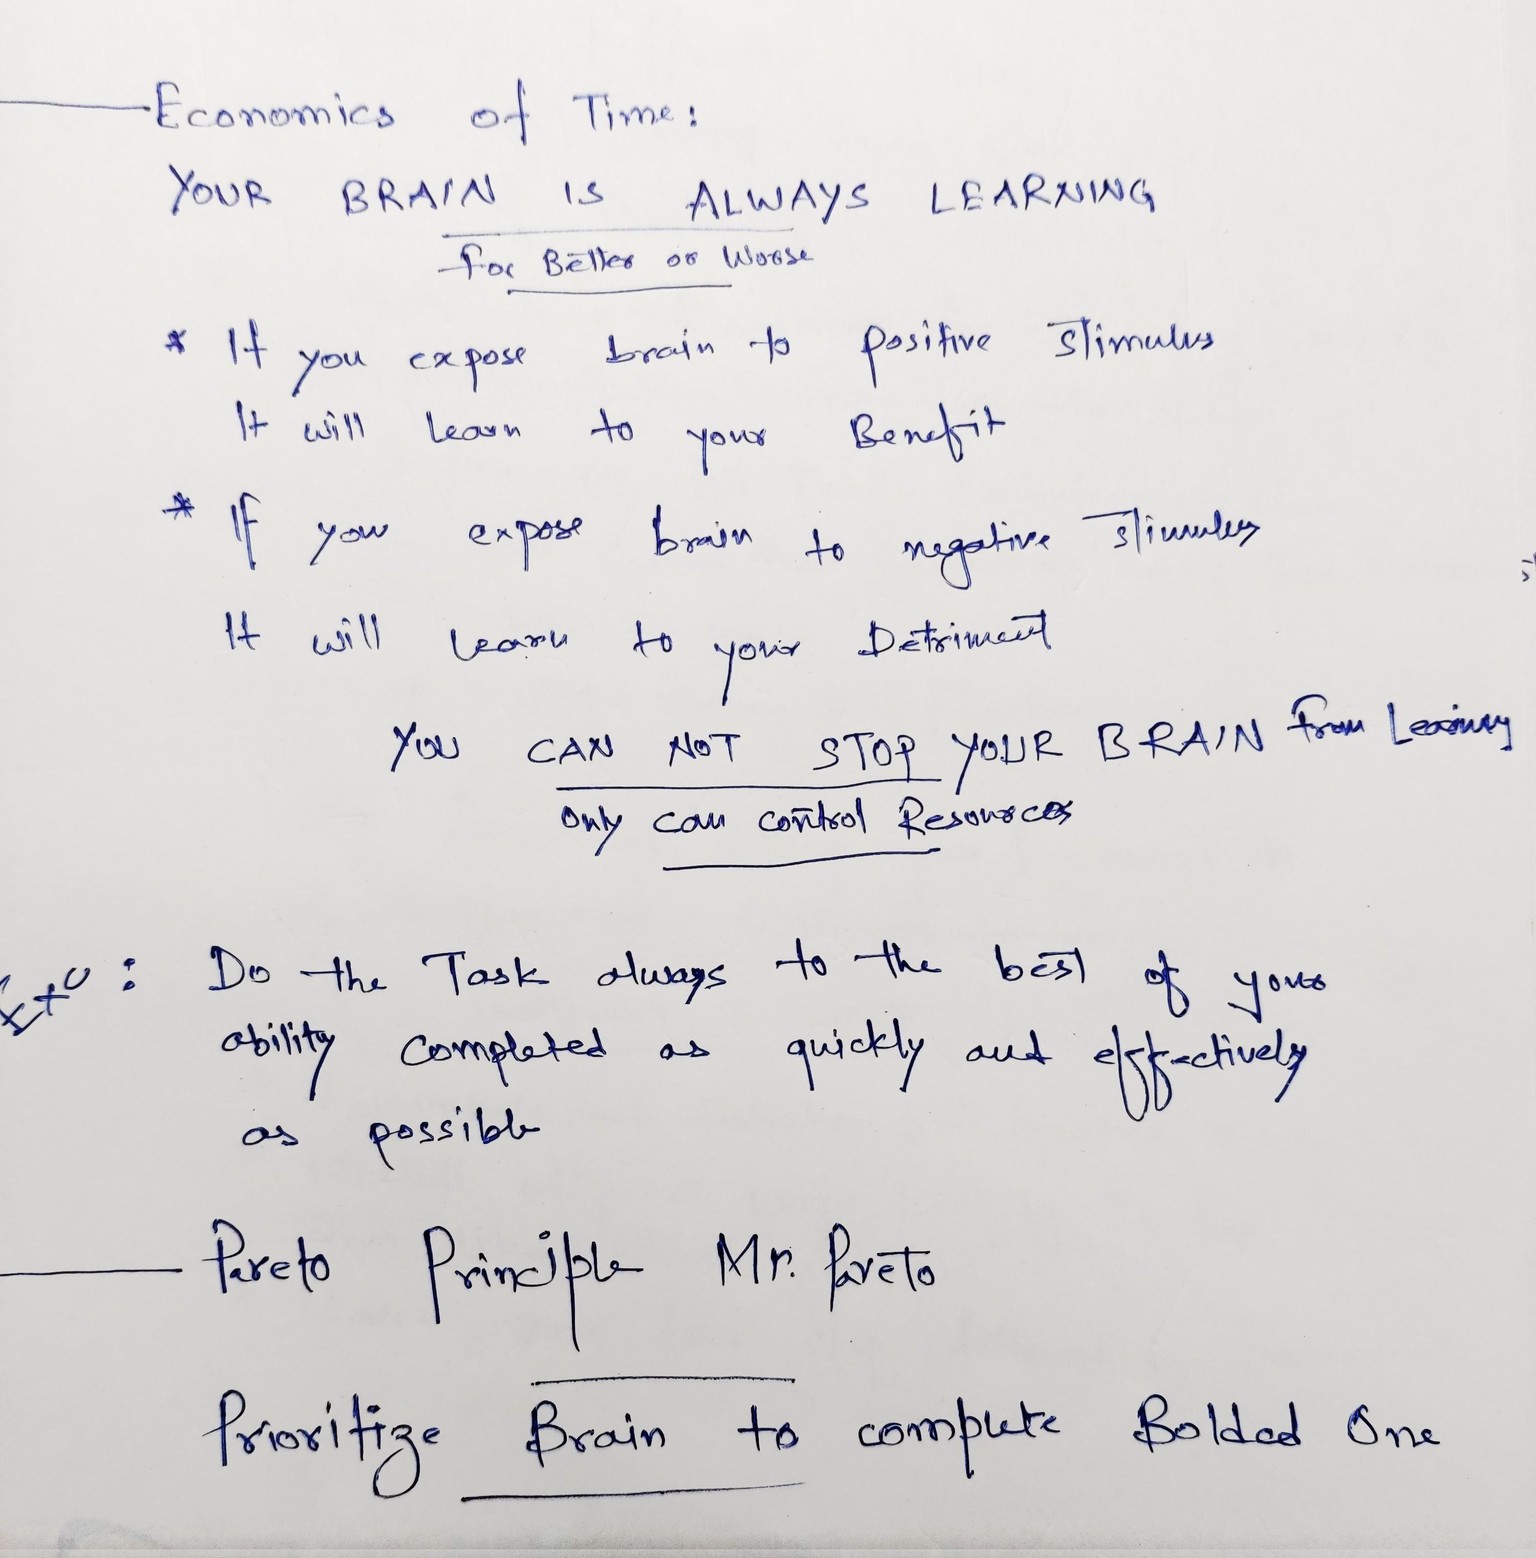 Economics of Time:
YOUR BRAIN IS ALWAYS LEARNING
For Better or Worse
* If you expose brain to positive stimulus
It will learn to your Benefit
* If you expose brain to negative stimulus
It will learn to your Detriment
YOU CAN NOT STOP YOUR BRAIN from Learning
Only can control Resources
: Do the Task always to the best of your
ability completed as quickly and effectively
as possible
Pareto Principle Mr. Pareto
Prioritize Brain to complete Bolded One